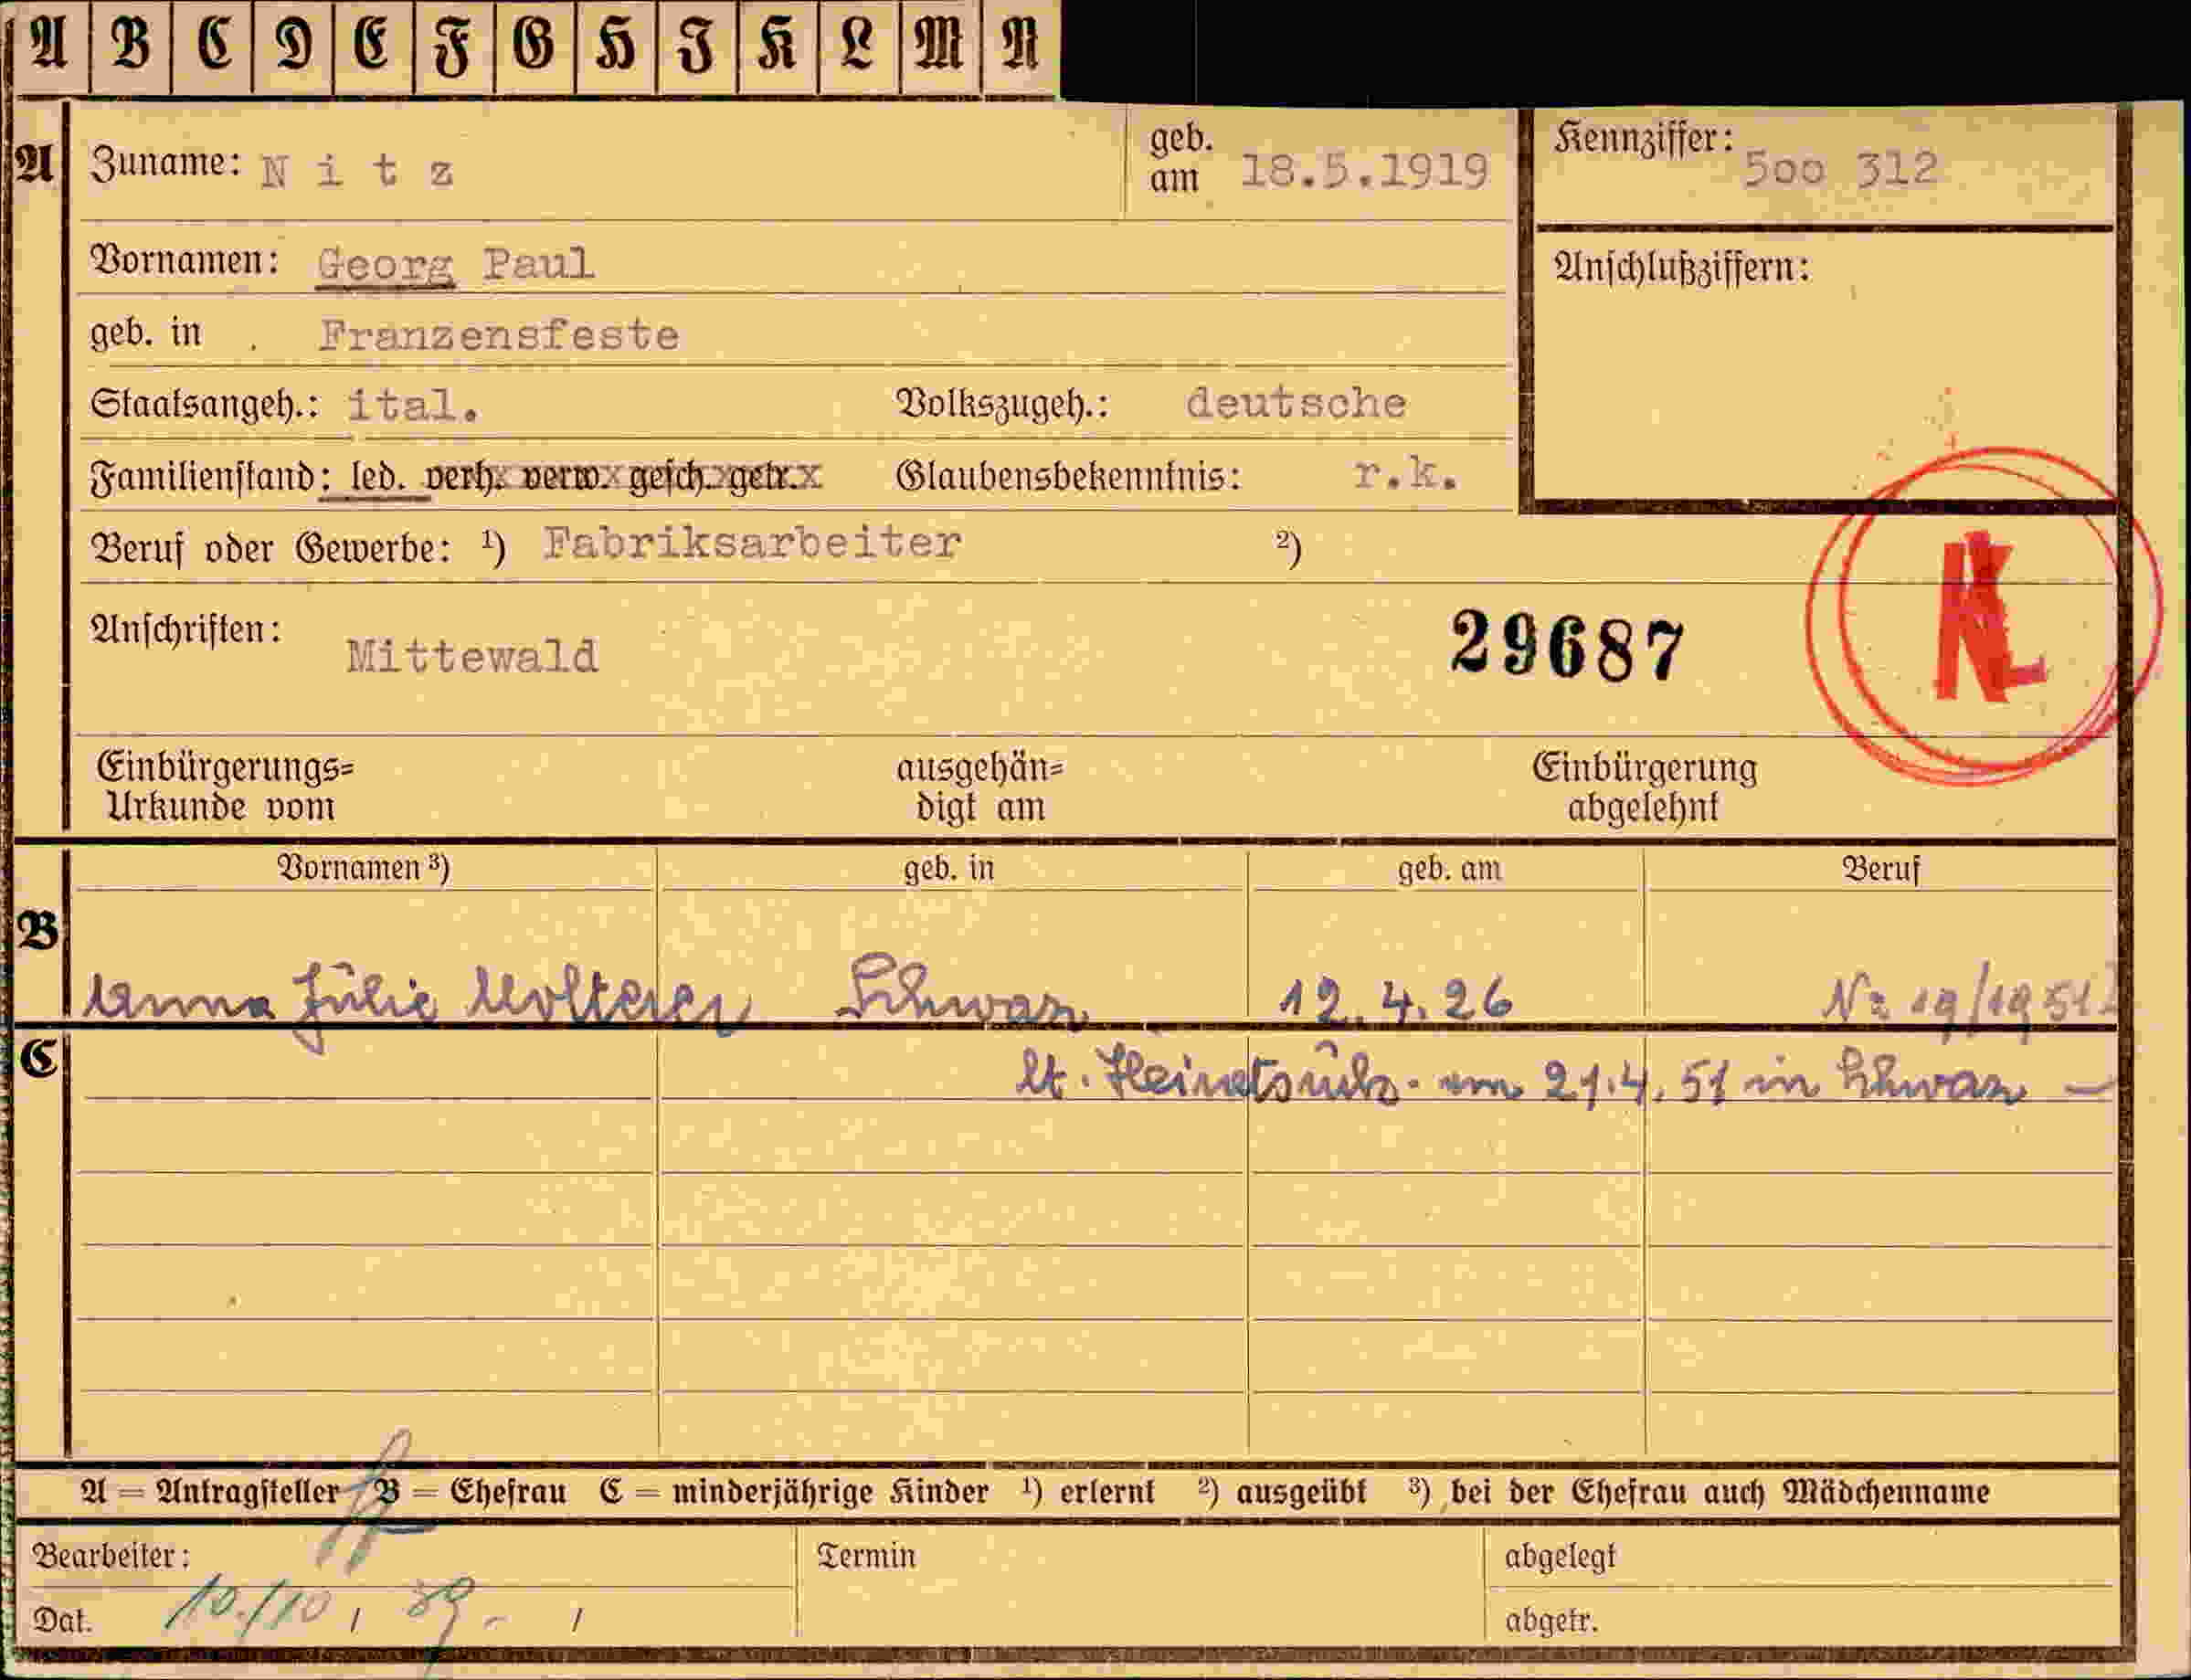 A B C D E F G H J K L M N
A Zuname: N i t z geb. am 18.5.1919 Kennziffer: 5oo 312
Vornamen: Georg Paul Anschlußziffern:
geb. in . Franzensfeste
Staatsangeh.: ital. Volkszugeh.: deutsche
Familienstand: led. verh. verw. gesch. getr. Glaubensbekenntnis: r.k.
Beruf oder Gewerbe: ¹) Fabriksarbeiter ²)
K
Anschriften: Mittewald 29687
Einbürgerungs= ausgehän= Einbürgerung
Urkunde vom digt am abgelehnt
Vornamen ³) geb. in geb. am Beruf
B
Anna Julie Molterer Schwaz 12.4.26 Nr 19/1951
C
lt. am 21.4.51 in Schwaz —
A = Antragsteller B = Ehefrau C = minderjährige Kinder ¹) erlernt ²) ausgeübt ³) bei der Ehefrau auch Mädchenname
Bearbeiter: Termin abgelegt
Dat. 10./10 / 39. - / abgetr.